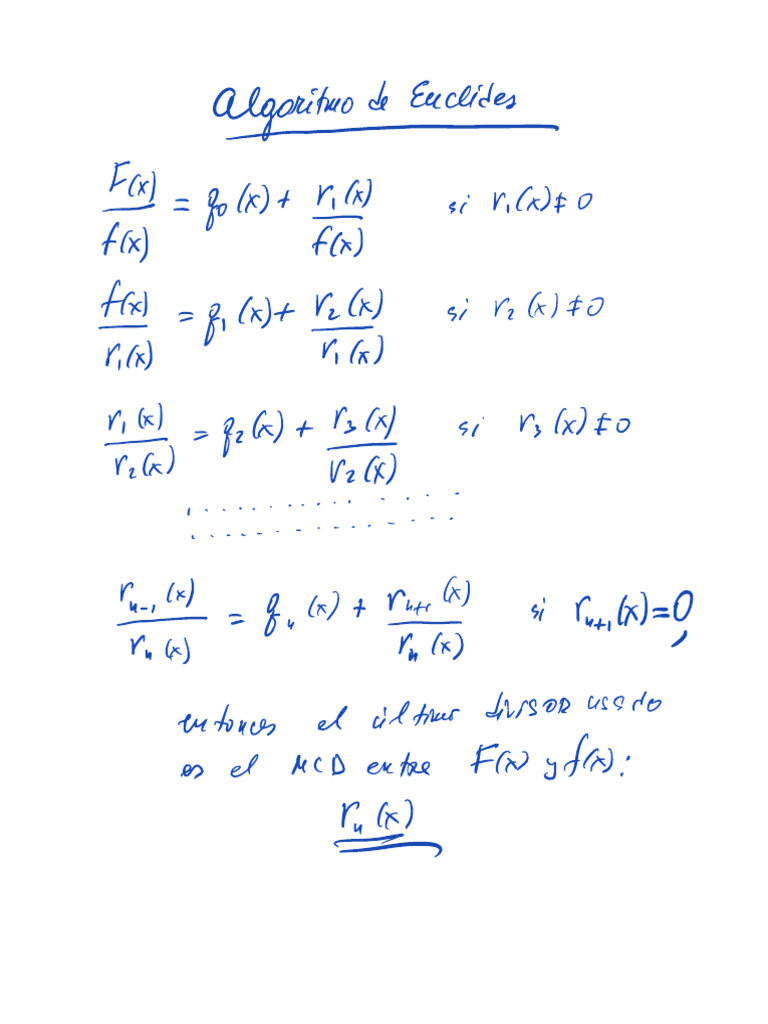 Algoritmo de Euclides
F(x)/f(x) = q₀(x) + r₁(x)/f(x) si r₁(x) ≠ 0
f(x)/r₁(x) = q₁(x) + r₂(x)/r₁(x) si r₂(x) ≠ 0
r₁(x)/r₂(x) = q₂(x) + r₃(x)/r₂(x) si r₃(x) ≠ 0
. . . . . . . . . . . . . .
. . . . . . . . . . . . . .
rₙ₋₁(x)/rₙ(x) = qₙ(x) + rₙ₊₁(x)/rₙ(x) si rₙ₊₁(x) = 0,
entonces el último divisor usado
es el MCD entre F(x) y f(x):
rₙ(x)